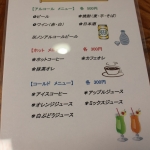 【アルコール メニュー】 各 500円
★ビール ★焼酎（麦・芋・そば）
★ワイン（赤・白） ★日本酒
★ノンアルコールビール
【ホット メニュー】 各 300円
★ホットコーヒー ★カフェオレ
★抹茶オレ
【コールド メニュー】 各 300円
★アイスコーヒー ★アップルジュース
★オレンジジュース ★ミックスジュース
★白ぶどうジュース